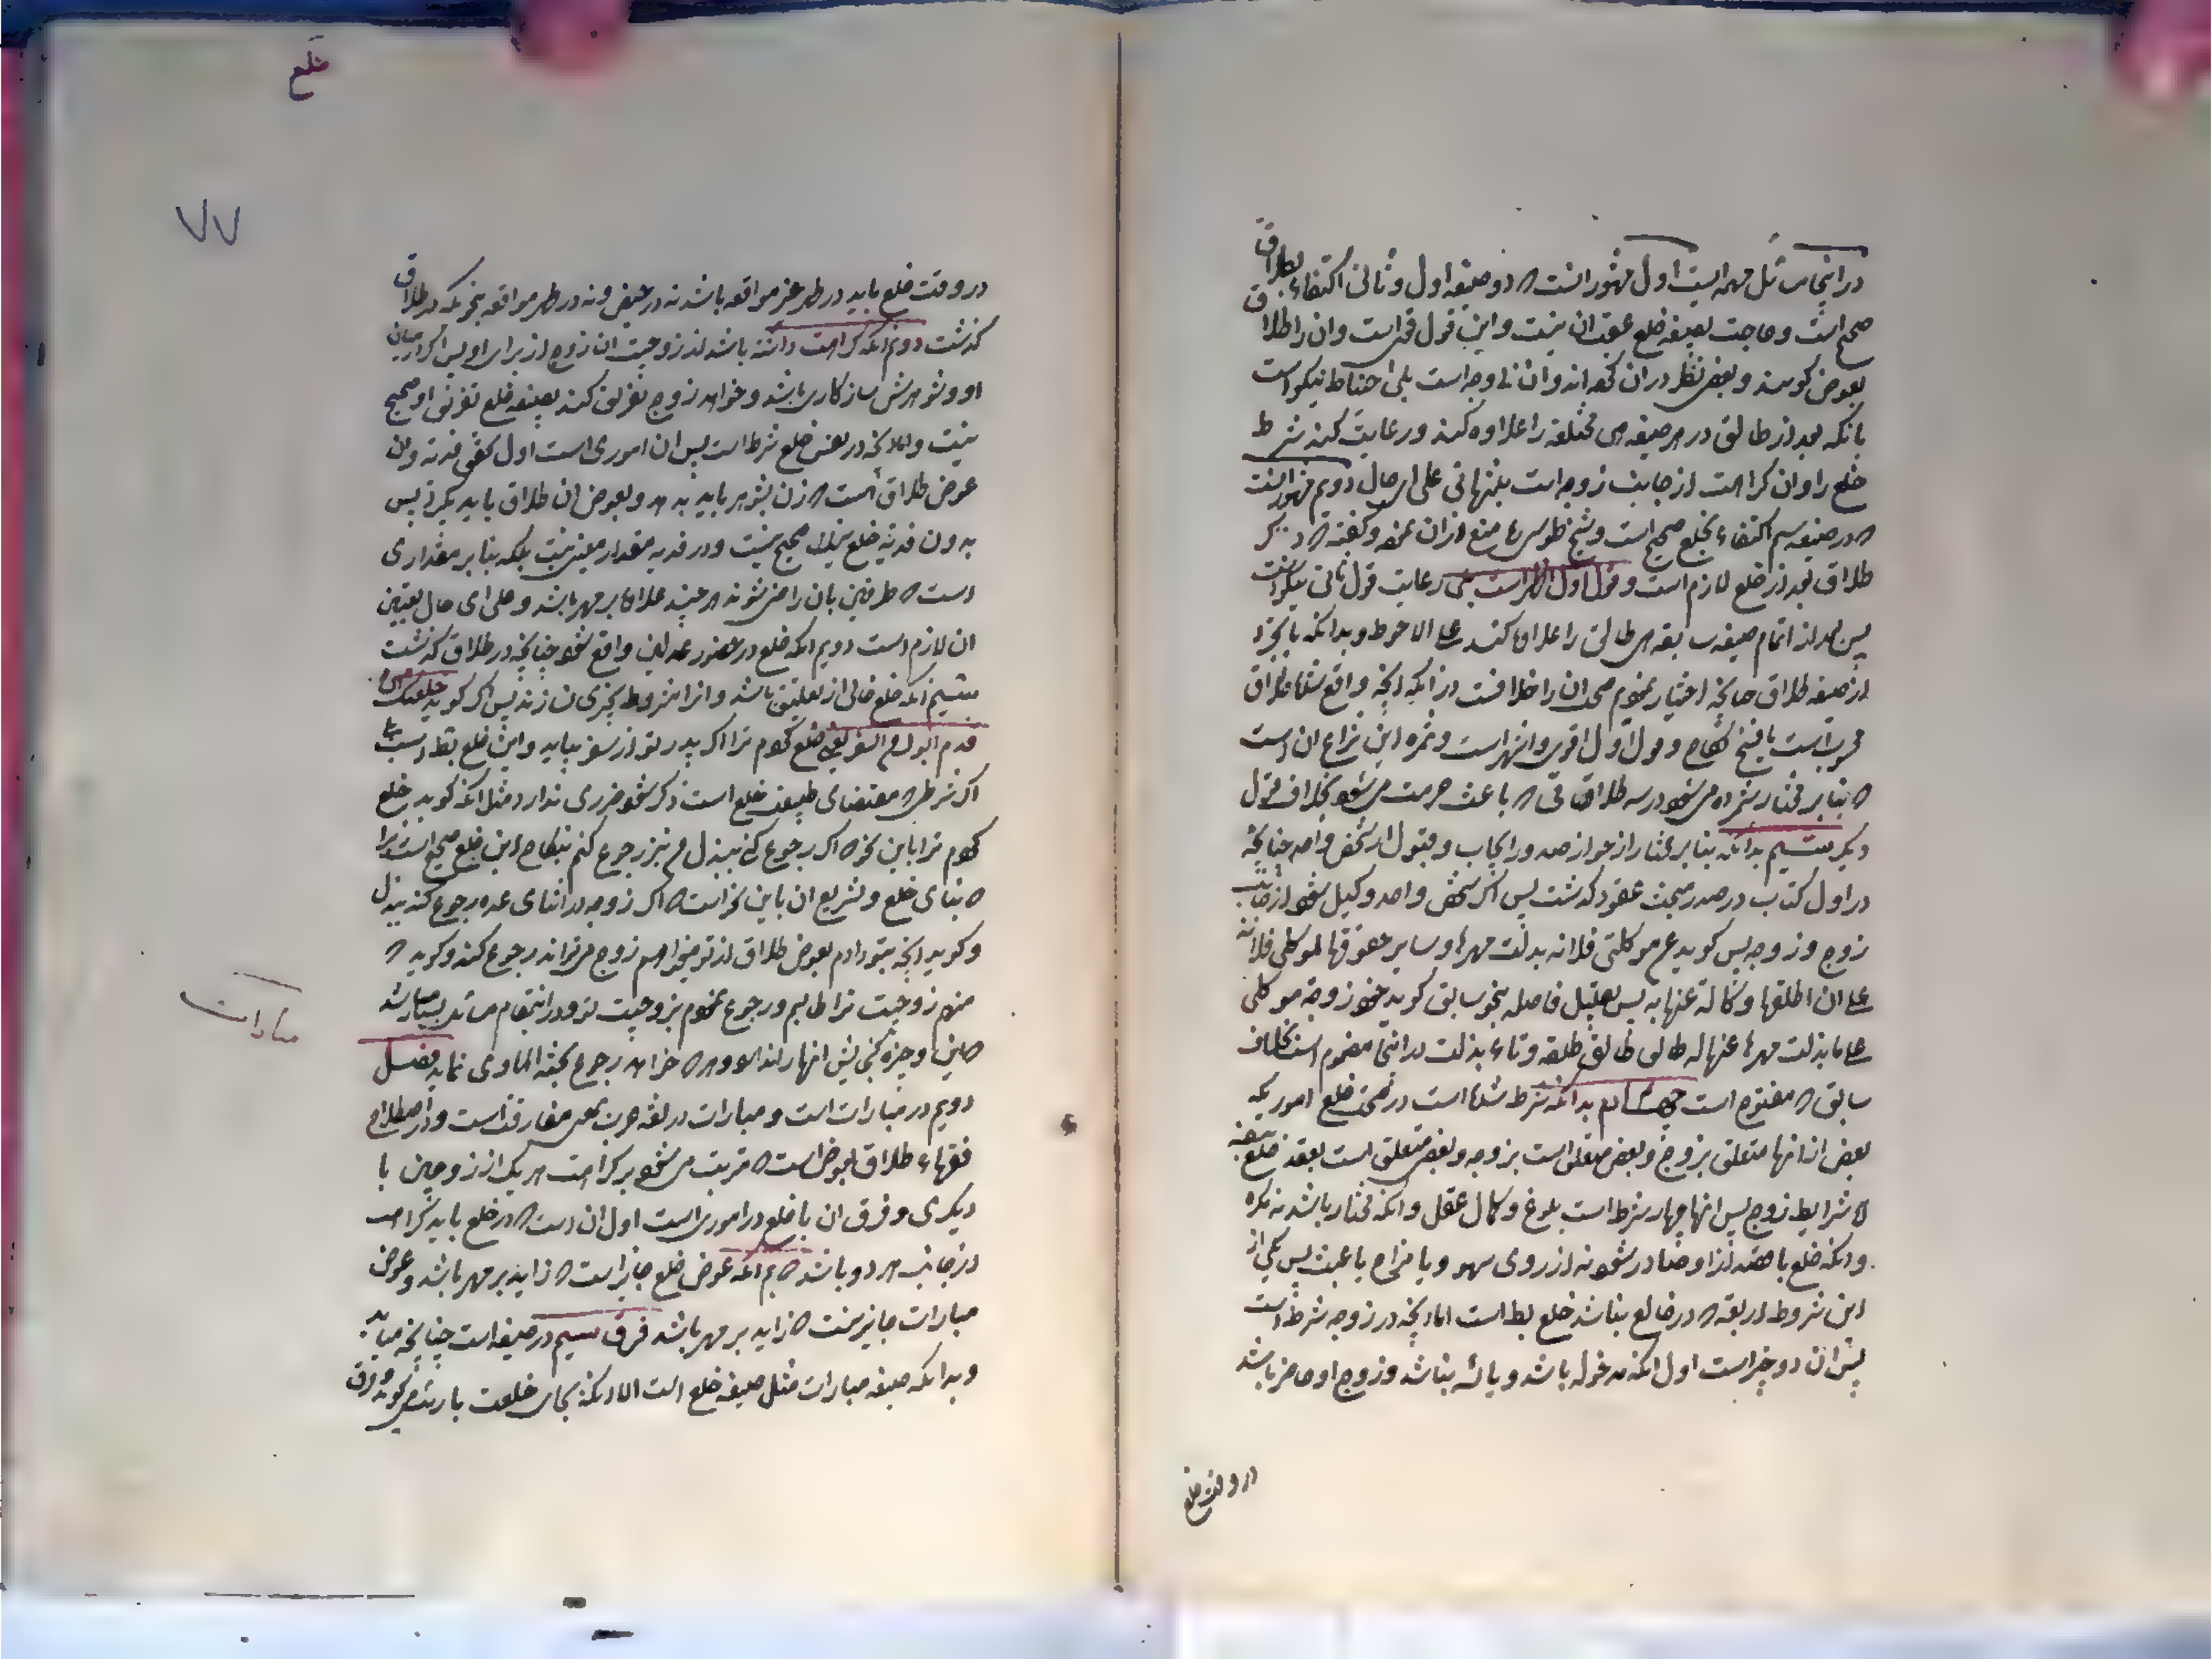 در اینجا مسائل مهمه ایست اول مشهور انست که در دو صیغه اول و ثانی اکتفاء بطلاق
صحیح است و حاجت بصیغه خلع عقب ان نیست و این قول قوی است و ان را طلاق
بعوض کویند و بعضی نظر در ان کرده اند و ان بی وجه است بلی احتیاط نیکو است
بانکه بعد از طالق در هر صیغه هی مختلعه را علاوه کند و رعایت کند شرط
خلع را و ان کراهت از جانب زوجه است بتنهائی علی ای حال دویم مشهور انست
که در صیغه سیم اکتفاء بخلع صحیح است و شیخ طوسی ره منع از ان نموده و کفته که ذکر
طلاق بعد از خلع لازم است و قول اول اظهر است بلی رعایت قول ثانی نیکو است
پس بعد از اتمام صیغه سابقه هی طالق را علاوه کند علی الاحوط و بدانکه بانچه
از صیغه طلاق چنانچه اختیار نمودیم محل ان را خلافست در انکه انچه واقع شده طلاق
محسوب است یا فسخ نکاح و قول اول اقوی و اشهر است و ثمره این نزاع ان است
که بنابر مختار شمرده می شود در سه طلاقی که باعث حرمت می شود بخلاف قول
دیکر سیم بدانکه بنابر مختار از جواز صدور ایجاب و قبول از شخص واحد چنانچه
در اول کتاب در صدر مبحث عقود کذشت پس اکر شخص واحد وکیل شود از جانب
زوج و زوجه پس کوید عن موکلتی فلانه بذلت مهرها و سایر حقوقها لموکلی فلان
علی ان اطلقها وکالة عنها به پس بقلیل فاصله بنحو سابق کوید زوجة موکلی
علی ما بذلت مهرها عنها له طالق طالق طلقه و تاء بذلت در اینجا مضموم است بخلاف
سابق که مفتوح است چهارم بدانکه شرط شده است در صحت خلع اموریکه
بعض از انها متعلق بزوج و بعض متعلق است بزوجه و بعض متعلق است بعقد خلع و صیغه
اما شرایط زوج پس انها چهار شرط است بلوغ و کمال عقل و انکه مختار باشد نه مکره
و انکه خلع با قصد از او صادر شود نه از روی سهو و یا مزاح یا عبث پس یکی از
این شروط اربعه که در خالع نباشد خلع بط است اما انچه در زوجه شرط است
پس ان دو چیز است اول انکه مدخوله باشد و یائسه نباشد و زوج او حاضر باشد
در وقت خلع
خلع
۷۷
در وقت خلع باید در طهر غیر مواقعه باشد نه در حیض و نه در طهر مواقعه بنحویکه در طلاق
کذشت دویم انکه کراهت داشته باشد از زوجیت ان زوج از برای او پس اکر میان
او و شوهرش سازکاری باشد و خواهد زوج تفریق کند بصیغه خلع تفریق او صحیح
نیست و اما انچه در نفس خلع شرط است پس ان اموری است اول تحقق فدیه و ان
عوض طلاق است که زن بشوهر باید بدهد و بعوض ان طلاق باید بکیرد پس
بدون فدیه خلع مثلا صحیح نیست و در فدیه مقدار معینی نیست بلکه بنابر مقداری
است که طرفین بان راضی شوند هر چند علاوه بر مهر باشد و علی ای حال تعیین
ان لازم است دویم انکه خلع در حضور عدلین واقع شود چنانچه در طلاق کذشت
سیم انکه خلع خالی از تعلیق باشد و انرا مشروط بچیزی نسازند پس اکر کوید خلعتک ان
قدم ابوک من السفر یعنی خلع کردم ترا اکر پدر تو از سفر بیاید و این خلع بط است بلی
اکر شرطی که مقتضای طبیعت خلع است ذکر شود ضرری ندارد مثل انکه کوید خلع
کردم ترا باین نحو که اکر رجوع کنی ببذل من نیز رجوع کنم بنکاح این خلع صحیح است زیرا
که بنای خلع و تشریع ان باین نحو است که اکر زوجه در اثنای عده رجوع کند ببذل
و کوید انچه بتو دادم بعوض طلاق از تو میخواهم زوج میتواند رجوع کند و کوید که
منهم زوجیت ترا طالبم و رجوع نمودم بزوجیت تو و در اینمقام مسائل بسیار شد
که این وجیزه کنجایش انها را ندارد و هر که خواهد رجوع بجنة الماوی نماید فصل
دویم در مبارات است و مبارات در لغة عرب بمعنی مفارقت است و در اصطلاح
فقهاء طلاق بعوض است که مترتب می شود بر کراهت هر یک از زوجین با
دیکری و فرق ان با خلع در اموری است اول ان است که در خلع باید کراهت
در جانب هر دو باشد دویم انکه عوض خلع جایز است که زاید بر مهر باشد و عوض
مبارات جایز نیست که زاید بر مهر باشد فرق سیم در صیغه است چنانچه میاید
و بدانکه صیغه مبارات مثل صیغه خلع است الا انکه بجای خلعت بارئت می کوید و فرق
مبارات